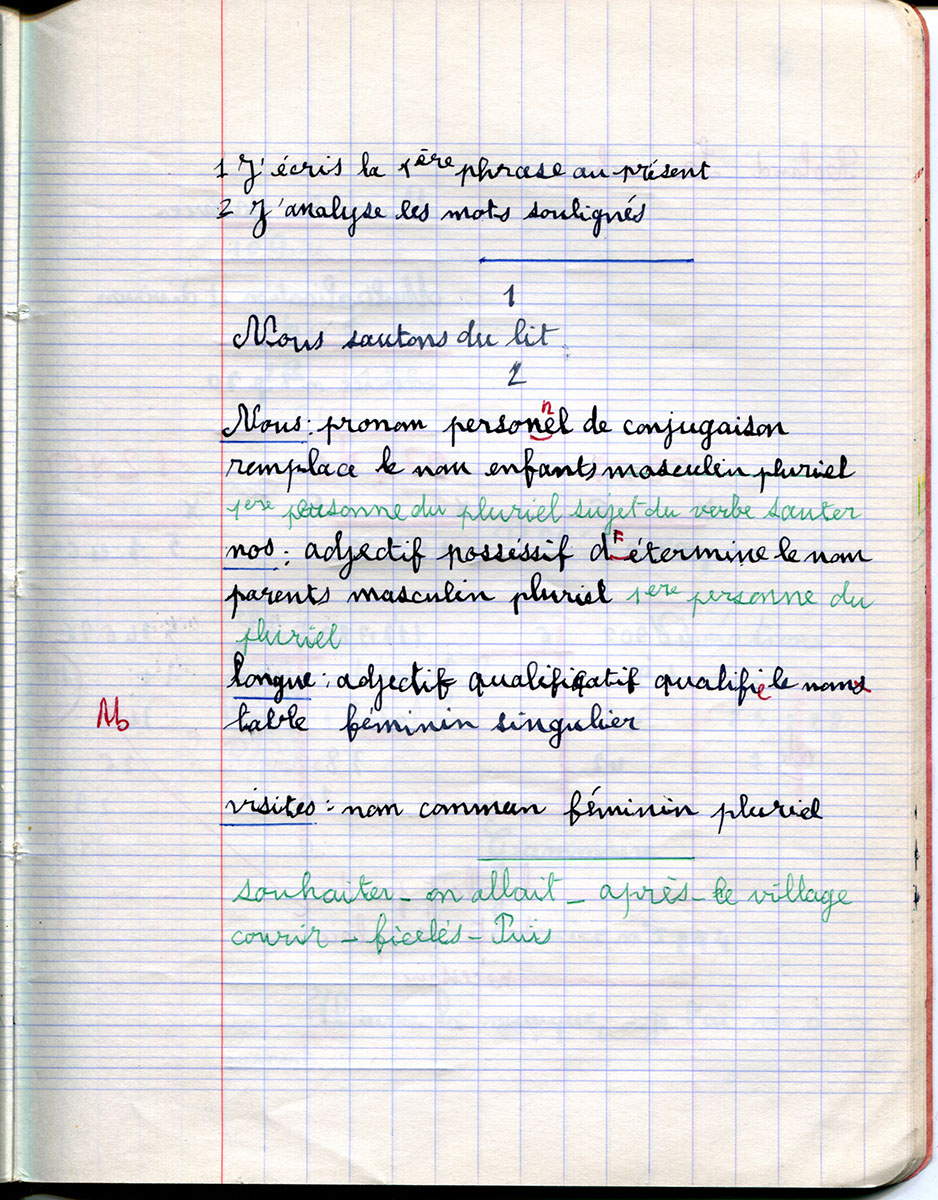 1 J'écris la 1ère phrase au présent
2 J'analyse les mots soulignés
1
Nous sautons du lit
2
n
Nous : pronom personel de conjugaison
remplace le nom enfants masculin pluriel
1ere personne du pluriel sujet du verbe sauter
nos : adjectif posséssif détermine le nom
parents masculin pluriel 1ere personne du
pluriel
longue : adjectif qualificatif qualifie le nom
table féminin singulier
visites : nom commun féminin pluriel
souhaiter - on allait - après - le village
courir - ficelés - Puis